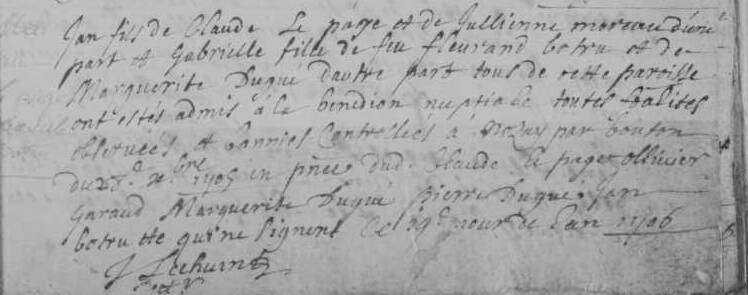 Jan fils de Claude Le page et de Jullienne moreau d'une
part et Gabrielle fille de feu fleurand botru et de
Marguerite Dugué dautre part tous de cette paroisse
ont estés admis a la benediõn nuptialle toutes
observées et bannies Controllées à par bouton
du 28e xbre 1705 en pñce dud. Claude le page ollivier
Garaud Marguerite Dugué pierre Dugué Jan
botru etc qui ne signent Ce jour de l'an 1706